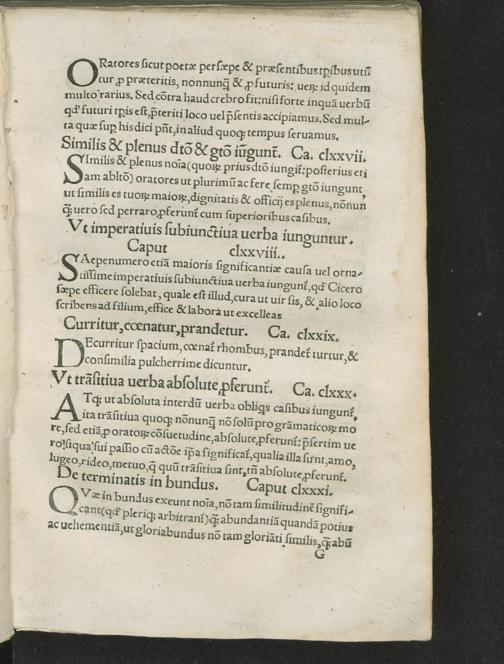 ORatores sicut poetæ persæpe & præsentibus tp̃ibus utũ
tur ꝓ præteritis, nonnunq̃ & ꝓ futuris: ueꝝ id quidem
multo rarius. Sed cõtra haud crebro fit: nisi forte inquã uerbũ
qď futuri tp̃is est, p̃teriti loco uel p̃sentis accipiamus. Sed mul-
ta quæ sup̱ his dici pñt, in aliud quoq; tempus seruamus.
Similis & plenus dtõ & gtõ iũgunt̃. Ca. clxxvii.
SImilis & plenus noĩa (quoꝝ prius dtõ iungit̃: posterius eti
am abltõ) oratores ut plurimũ ac fere semp̱ gtõ iungunt,
ut similis es tuoꝝ maioꝝ, dignitatis & officij es plenus, nõnun
q̃ uero sed perraro, ꝓferunt̃ cum superioribus casibus.
Vt imperatiuis subiunctiua uerba iunguntur.
Caput clxxviii..
SAepenumero etiã maioris significantiæ causa uel orna-
tissime imperatiuis subiunctiua uerba iungunt̃, qď Cicero
sæpe efficere solebat, quale est illud, cura ut uir sis, & alio loco
scribens ad filium, effice & labora ut excelleas
Curritur, cœnatur, prandetur. Ca. clxxix.
DEcurritur spacium, cœnat̃ rhombus, prandet̃ turtur, &
consimilia pulcherrime dicuntur.
Vt trãsitiua uerba absolute ꝓferunt̃. Ca. clxxx.
ATq; ut absoluta interdũ uerba obliq̃s casibus iungunt̃,
ita trãsitiua quoq; nõnunq̃ nõ solũ pro grãmaticoꝝ mo
re, sed etiã ꝓ oratoꝝ cõsuetudine, absolute, ꝓferunt̃: p̃sertim ue
ro si qua sui passio cũ actõe ip̃a significat̃, qualia illa sunt, amo,
lugeo, rideo, metuo, q̃ quũ trãsitiua sint, tñ absolute ꝓferunt̃.
De terminatis in bundus. Caput clxxxi.
QVæ in bundus exeunt noĩa, nõ tam similitudinẽ signifi-
cant (qď pleriq; arbitrant̃) q̃ abundantiã quandã potius
ac uehementiã, ut gloriabundus nõ tam gloriãti similis, q̃ abũ
G